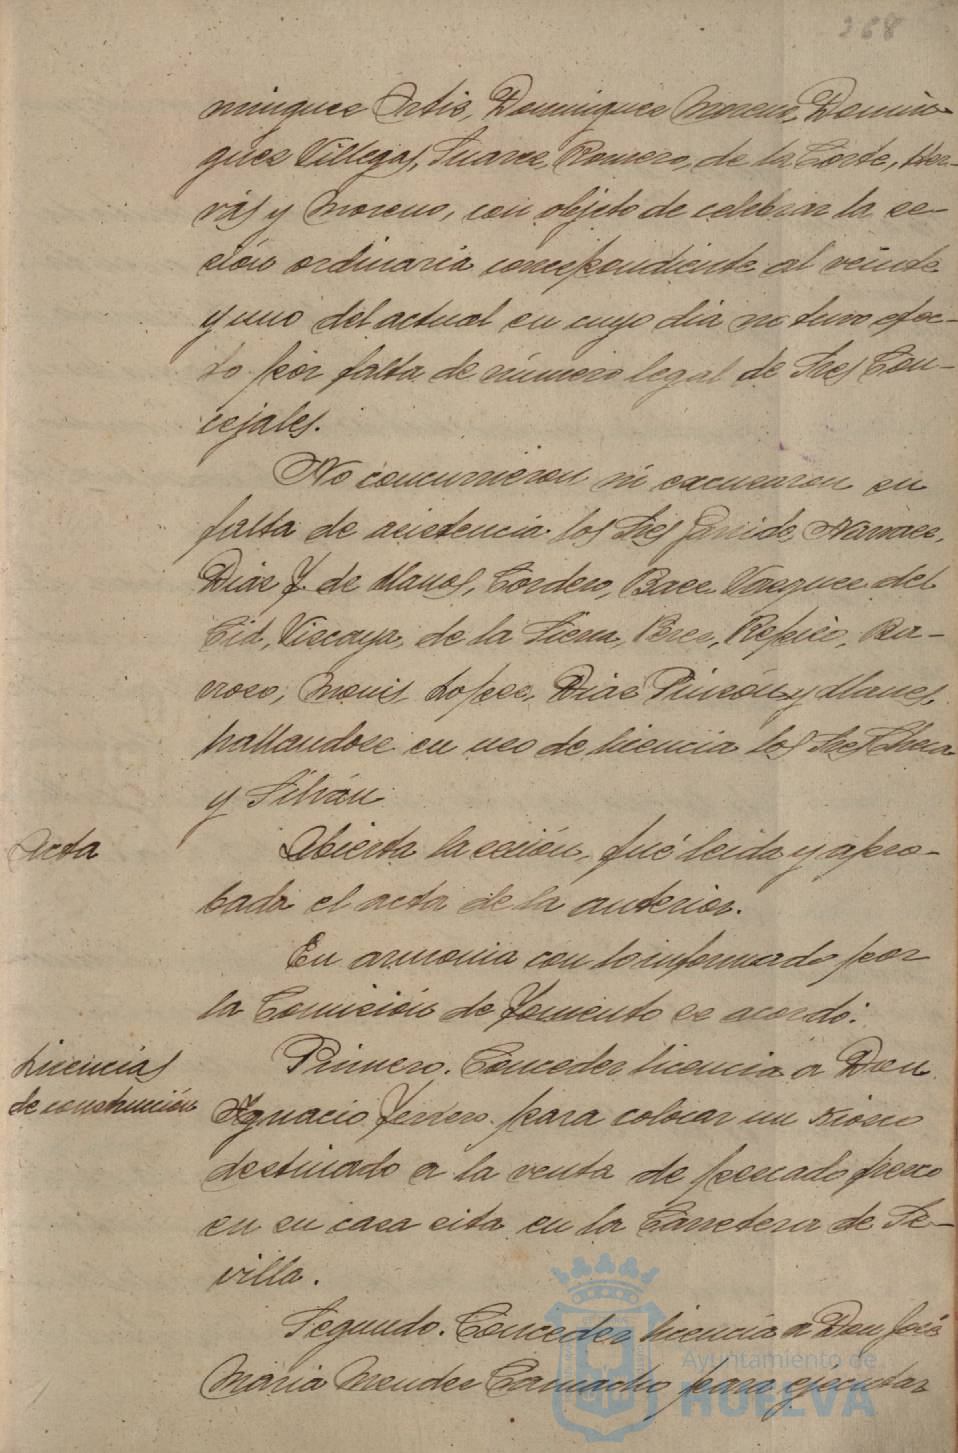 268
minguez Ortiz, Dominguez Moreno, Domin-
guez Villegas, Suarez, Romero, de la Corte, Her-
vás y Moreno, con objeto de celebrar la se-
sión ordinaria correspondiente al veinte
y uno del actual en cuyo dia no tuvo efec-
to por falta de número legal de Sres Con-
cejales.
No concurrieron ni excusaron su
falta de asistencia los Sres Garrido, Narvaez,
Diaz F. de Llanos, Cordero, Baez Vazquez del
Cid, Vizcaya, de la Sierra, Perez, Repiso, Ba-
rroso, Monis, Lopez, Diaz Pinzón y Llanes,
hallandose en uso de licencia los Sres Checa
y Silván.
Acta
Abierta la sesión, fué leida y apro-
bada el acta de la anterior.
En armonia con lo informado por
la Comisión de Fomento se acordó:
Licencias
de construcción
Primero. Conceder licencia a Don
Ygnacio Ferrero para colocar un kiosco
destinado a la venta de pescado fresco
en su casa sita en la Carretera de Se-
villa.
Segundo. Conceder licencia a Don José
Maria Mendez Camacho para ejecutar
Ayuntamiento de
HUELVA